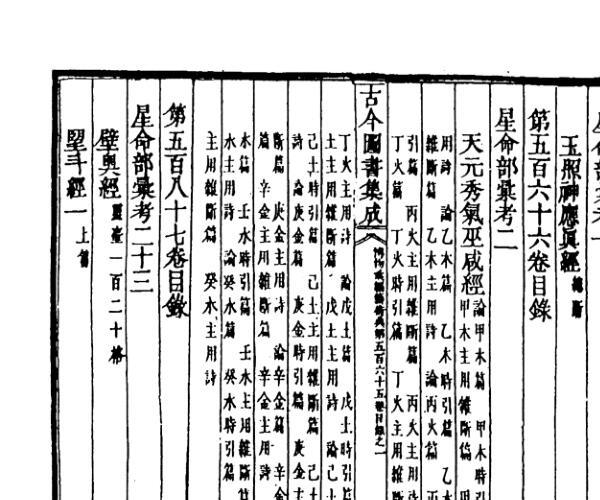 玉照神應眞經 總斷
第五百六十六卷目錄
星命部彙考二
天元秀氣巫咸經 論甲木篇 甲木時引
甲木主用雜斷篇 甲
用詩 論乙木篇 乙木時引篇 乙木
雜斷篇 乙木主用詩 論丙火篇
引篇 丙火主用雜斷篇 丙火主用詩
丁火篇 丁火時引篇 丁火主用雜
古今圖書集成 博物彙編藝術典第五百六十五卷目錄之一
丁火主用詩 論戊土篇 戊土時引篇
土主用雜斷篇 戊土主用詩 論己土
己土時引篇 己土主用雜斷篇 己土
詩 論庚金篇 庚金時引篇
斷篇 庚金主用詩 論辛金篇 辛金
篇 辛金主用雜斷篇 辛金主用詩
水篇 壬水時引篇 壬水主用雜斷篇
水主用詩 論癸水篇 癸水時引篇
主用雜斷篇 癸水主用詩
第五百八十七卷目錄
星命部彙考二十三
壁奧經 靈臺一百二十格
望斗經一 上篇